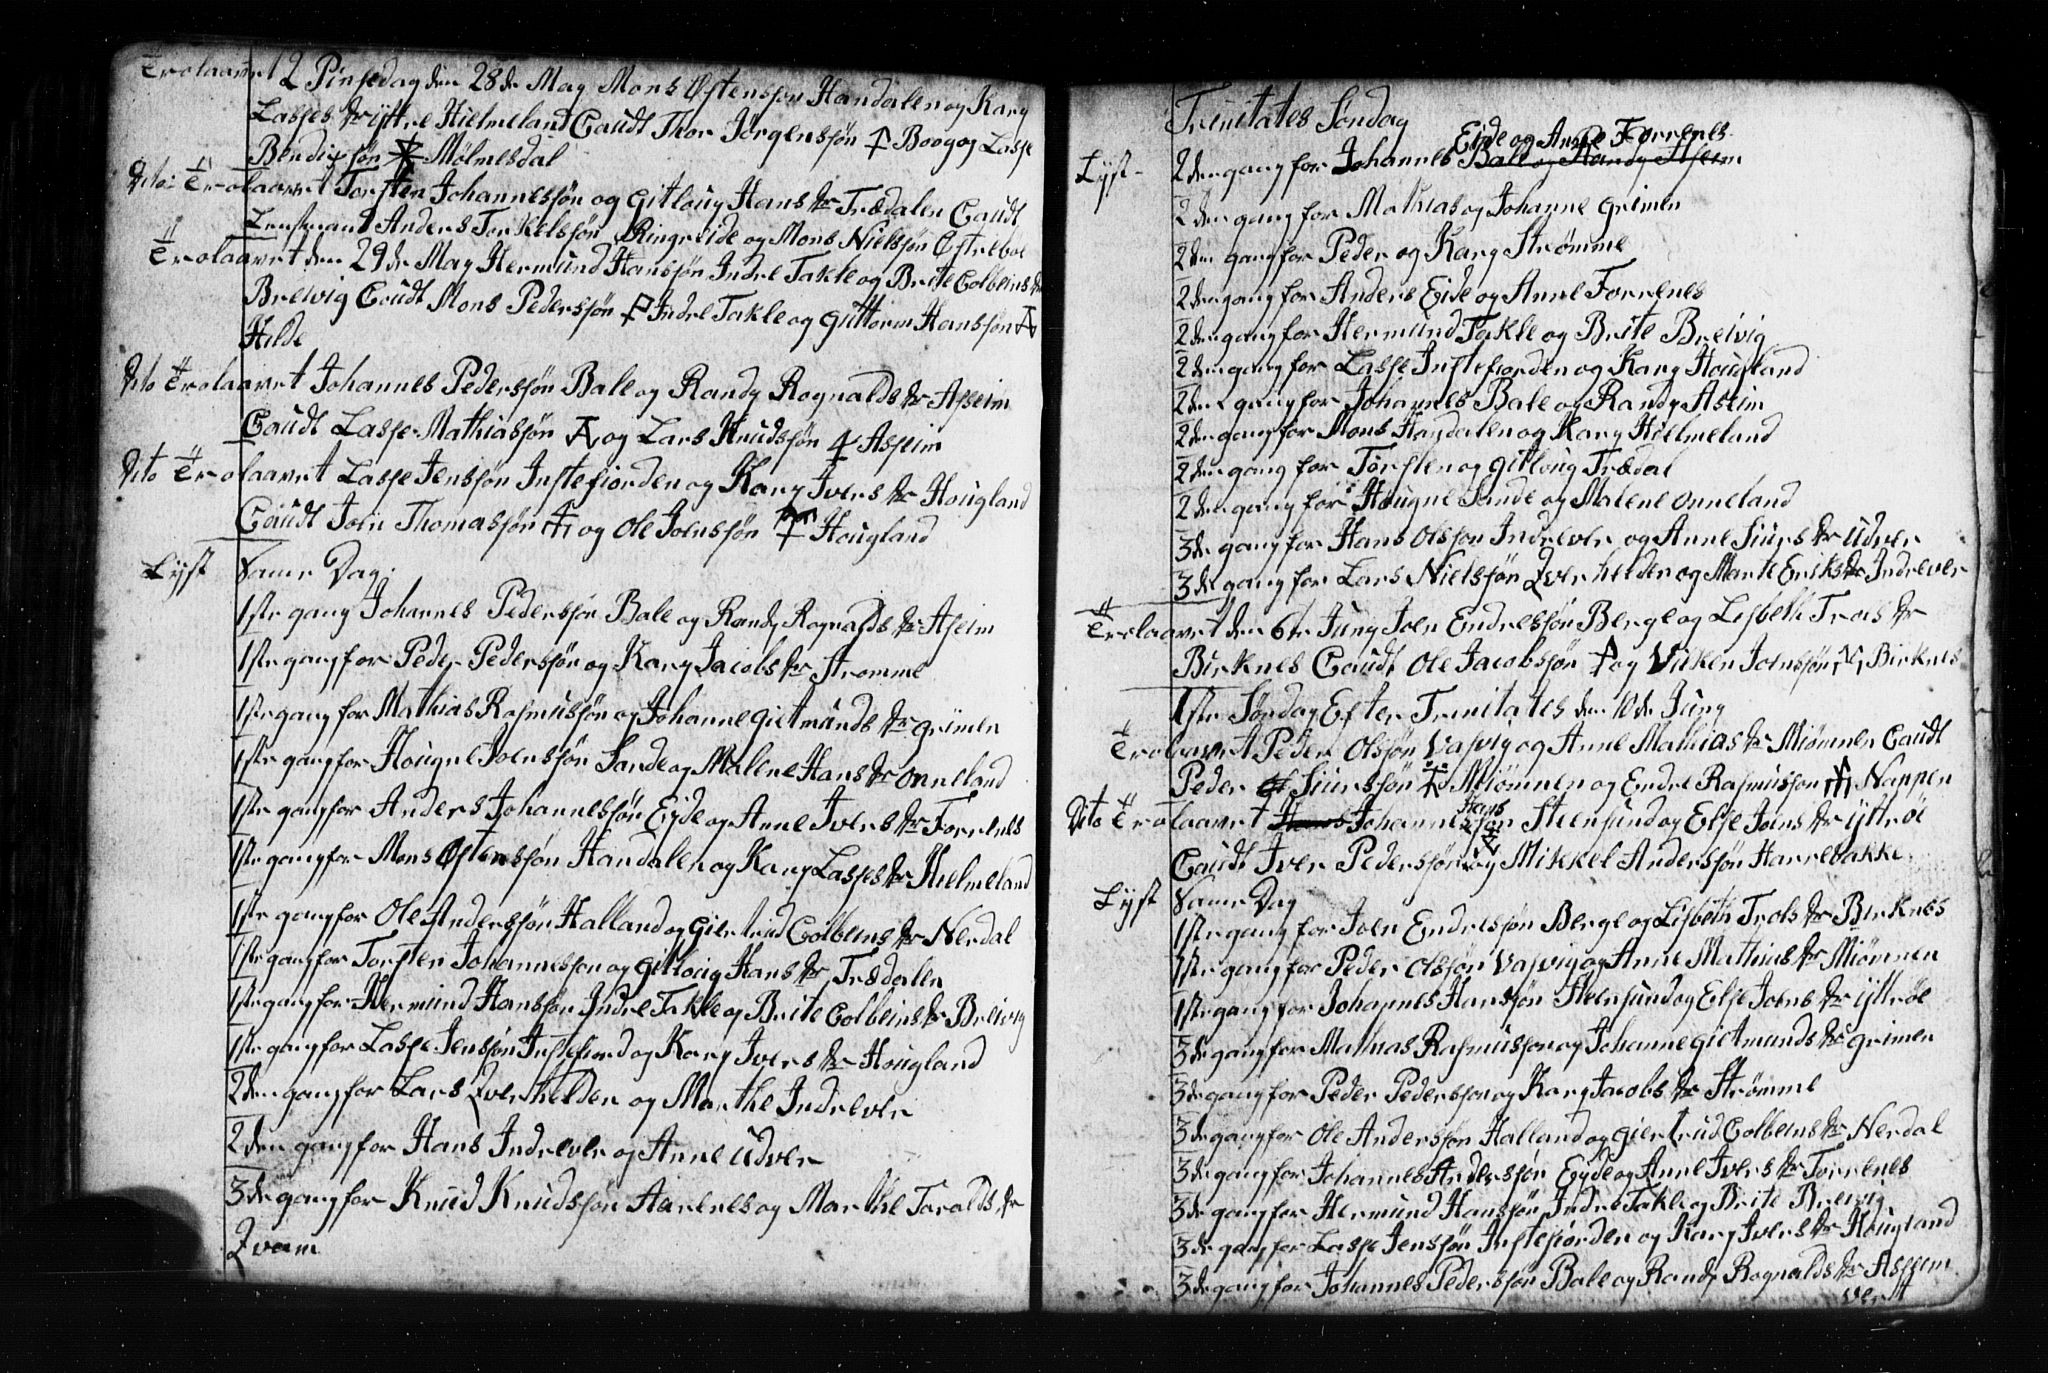 Trolaavet 2 Pinsedag den 28de May Mons Østenssøn Handalen og Kary
Lasses dr yttre Hielmeland Caudt Thor Jörgenssøn Boog og Lasse
Bendixsøn Mølmesdal
Dito Trolaavet Torsten Johannessøn og Gitloug Hans dr Trædalen Caudt
Lensmand Anders Torkelssøn Ringreide og Mons Nielssøn Østreboe
Trolaavet den 29de May Hermund Hanssøn Indre Takle og Brite Colbeins dr
Breivig Caudt Mons Pederssøn Indre Takle og Guttorm Hanssøn
Hilde
Dito Trolaavet Johannes Pederssøn Bale og Randy Rognalds dr Asseim
Caudt Lasse Mathiassøn og Lars Knudssøn Asseim
Dito Trolaavet Lasse Jenssøn Instefiorden og Kary Ivers dr Hougland
Caudt Join Thomassøn og Ole Joenssøn Hougland
Lyst Same Dag
1ste gang Johannes Pederssøn Bale og Randy Rognalds dr Aseim
1ste gang for Peder Pederssøn og Kary Jacobs dr Strømme
1ste gang for Mathias Rasmussøn og Johanne Gietmunds dr Grimen
1ste gang for Hougne Joenssøn Sande og Malene Hans dr Onneland
1ste gang for Anders Johannessøn Eyde og Anne Ivers dr Forrenes
1ste gang for Mons Østenssøn Handalen og Kary Lasses dr Hielmeland
1ste gang for Ole Anderssøn Halland og Giertrud Colbeins dr Nerdal
1ste gang for Torsten Johannessøn og Gitloug Hans dr Trædalen
1ste gang for Hermund Hanssøn Indre Takle og Brite Colbeins dr Breivig
1ste gang for Lasse Jenssøn Instefiord og Kary Ivers dr Hougland
2den gang for Lars Qverhelden og Marthe Indrever
2den gang for Hans Indrever og Anne Udver
3de gang for Knud Knudssøn Aarenes og Marthe Toralds dr
Qvam
Trinitates Søndag
Eide og Anne Forrenes
Lyst 2den gang for Johannes Bale og Randy Aseim
2den gang for Mathias og Johanne Grimen
2den gang for Peder og Kary Strømme
2den gang for Anders Eide og Anne Forrenes
2den gang for Hermund Takle og Brite Breivig
2den gang for Lasse Instefiorden og Kary Hougland
2den gang for Johannes Bale og Randy Aseim
2den gang for Mons Haydalen og Kary Hielmeland
2den gang for Torsten og Gitloug Trædal
2den gang for Hougne Sande og Malene Onneland
3de gang for Hans Olssøn Indrever og Anne Siurs dr Udver
3de gang for Lars Nielssøn Qverhelden og Marte Eriks dr Indrever
Trolaavet den 6te Juny Joen Endressøn Berge og Lisbeth Trols dr
Birknes Caudt Ole Jacobssøn og Vilken Joenssøn Birknes
1ste Søndag Efter Trinitates den 10de Juny
Trolaavet Peder Olssøn Vasvig og Anne Mathias dr Miømnen Caudt
Peder Siurssøn Miømnen og Endre Rasmussøn Nappen
Hans
Dito Trolaavet Hans Johannessøn Steensund og Else Joens dr Yttrøe
Caudt Iver Pederssøn og Mikkel Anderssøn Harrebakke
Lyst Same Dag
1ste gang for Joen Endressøn Berge og Lisbeth Trols dr Birknes
1ste gang for Peder Olssøn Vasvig og Anne Mathias dr Miømnen
1ste gang for Johannes Hanssøn Steensund og Else Joens dr Yttrøe
3de gang for Mathias Rasmussøn og Johanne Gietmunds dr Grimen
3de gang for Peder Pederssøn og Kary Jacobs dr Strømme
3de gang for Ole Anderssøn Halland og Giertrud Colbeins dr Nerdal
3de gang for Johannes Anderssøn Eyde og Anne Ivers dr Forrenes
3de gang for Hermund Hanssøn Indre Takle og Brite Breivig
3de gang for Lasse Jenssøn Instefiorden og Kary Ivers dr Hougland
3de gang for Johannes Pederssøn Bale og Randy Rognalds dr Asseim
Vert